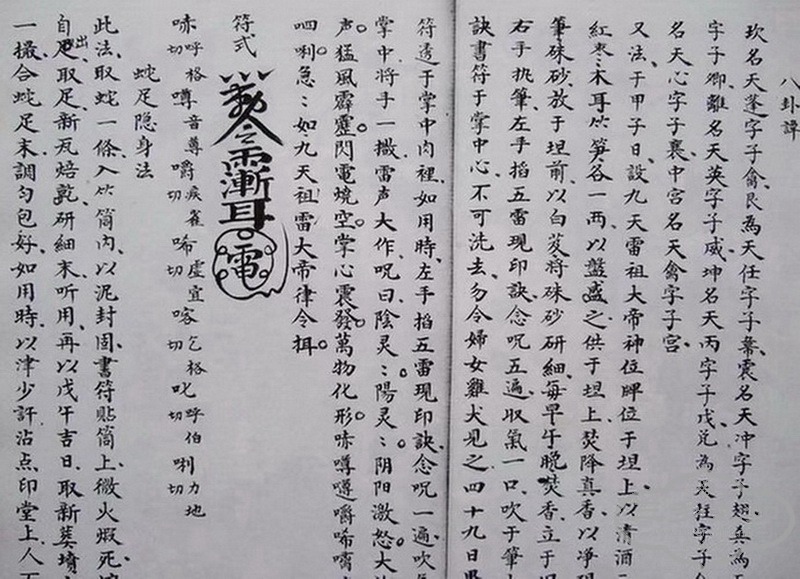 八卦譚
坎名天蓬字子禽艮為天任字子
震名天冲字子翅巽為
字子卿離名天英字子威坤名天丙字子戊兌為天柱字子
名天心字子襄中宮名天禽字子宮
又法于甲子日設九天雷祖大帝神位牌位于坦上以清酒
紅枣木耳竹笋各一两以盤盛之供于坦上焚降真香以净
筆硃砂放于坦前以白芨将硃砂研細每早午晚焚香立于
右手执筆左手掐五雷現印訣念呪五遍取氣一口吹于筆
訣書符于掌中心不可洗去勿令婦女雞犬見之四十九日
符透于掌中肉裡如用時左手掐五雷現印訣念呪一遍吹
掌中将手一撒雷声大作呪曰陰灵〻陽灵〻阴阳激怒大
声猛風霹靂閃電燒空掌心震發萬物化形味噂嘚嚼唏
呬唎急〻如九天祖雷大帝律令揖
符式
需漸耳電
味呼格切噂音尊嚼疾雀切唏虚宜切喀乞格切叱呼伯切唎力地切
蛇足隐身法
此法取蛇一條入竹筒内以泥封固書符貼筒上微火煆死
自出足取足新瓦焙乾研細末听用再以戊午吉日取新葬墳
一撮合蛇足末調匀包好如用時以津少許沾点印堂上人